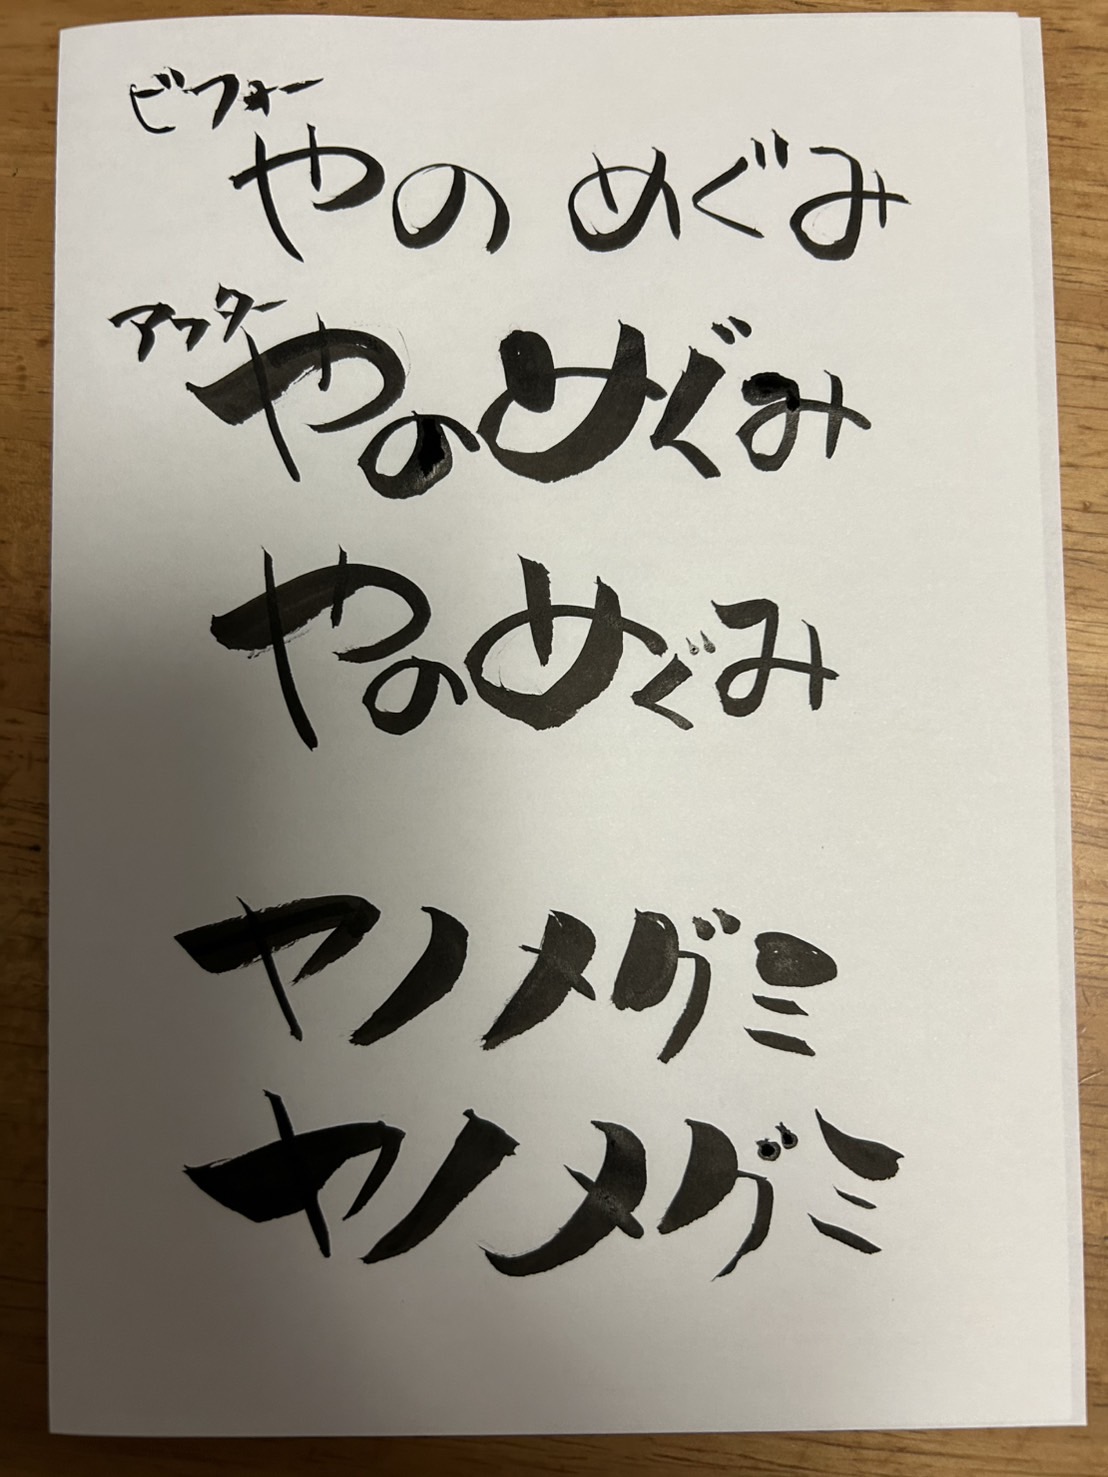 ビフォー
やの めぐみ
アフター
やのめぐみ
やのめぐみ
ヤノメグミ
ヤノメグミ